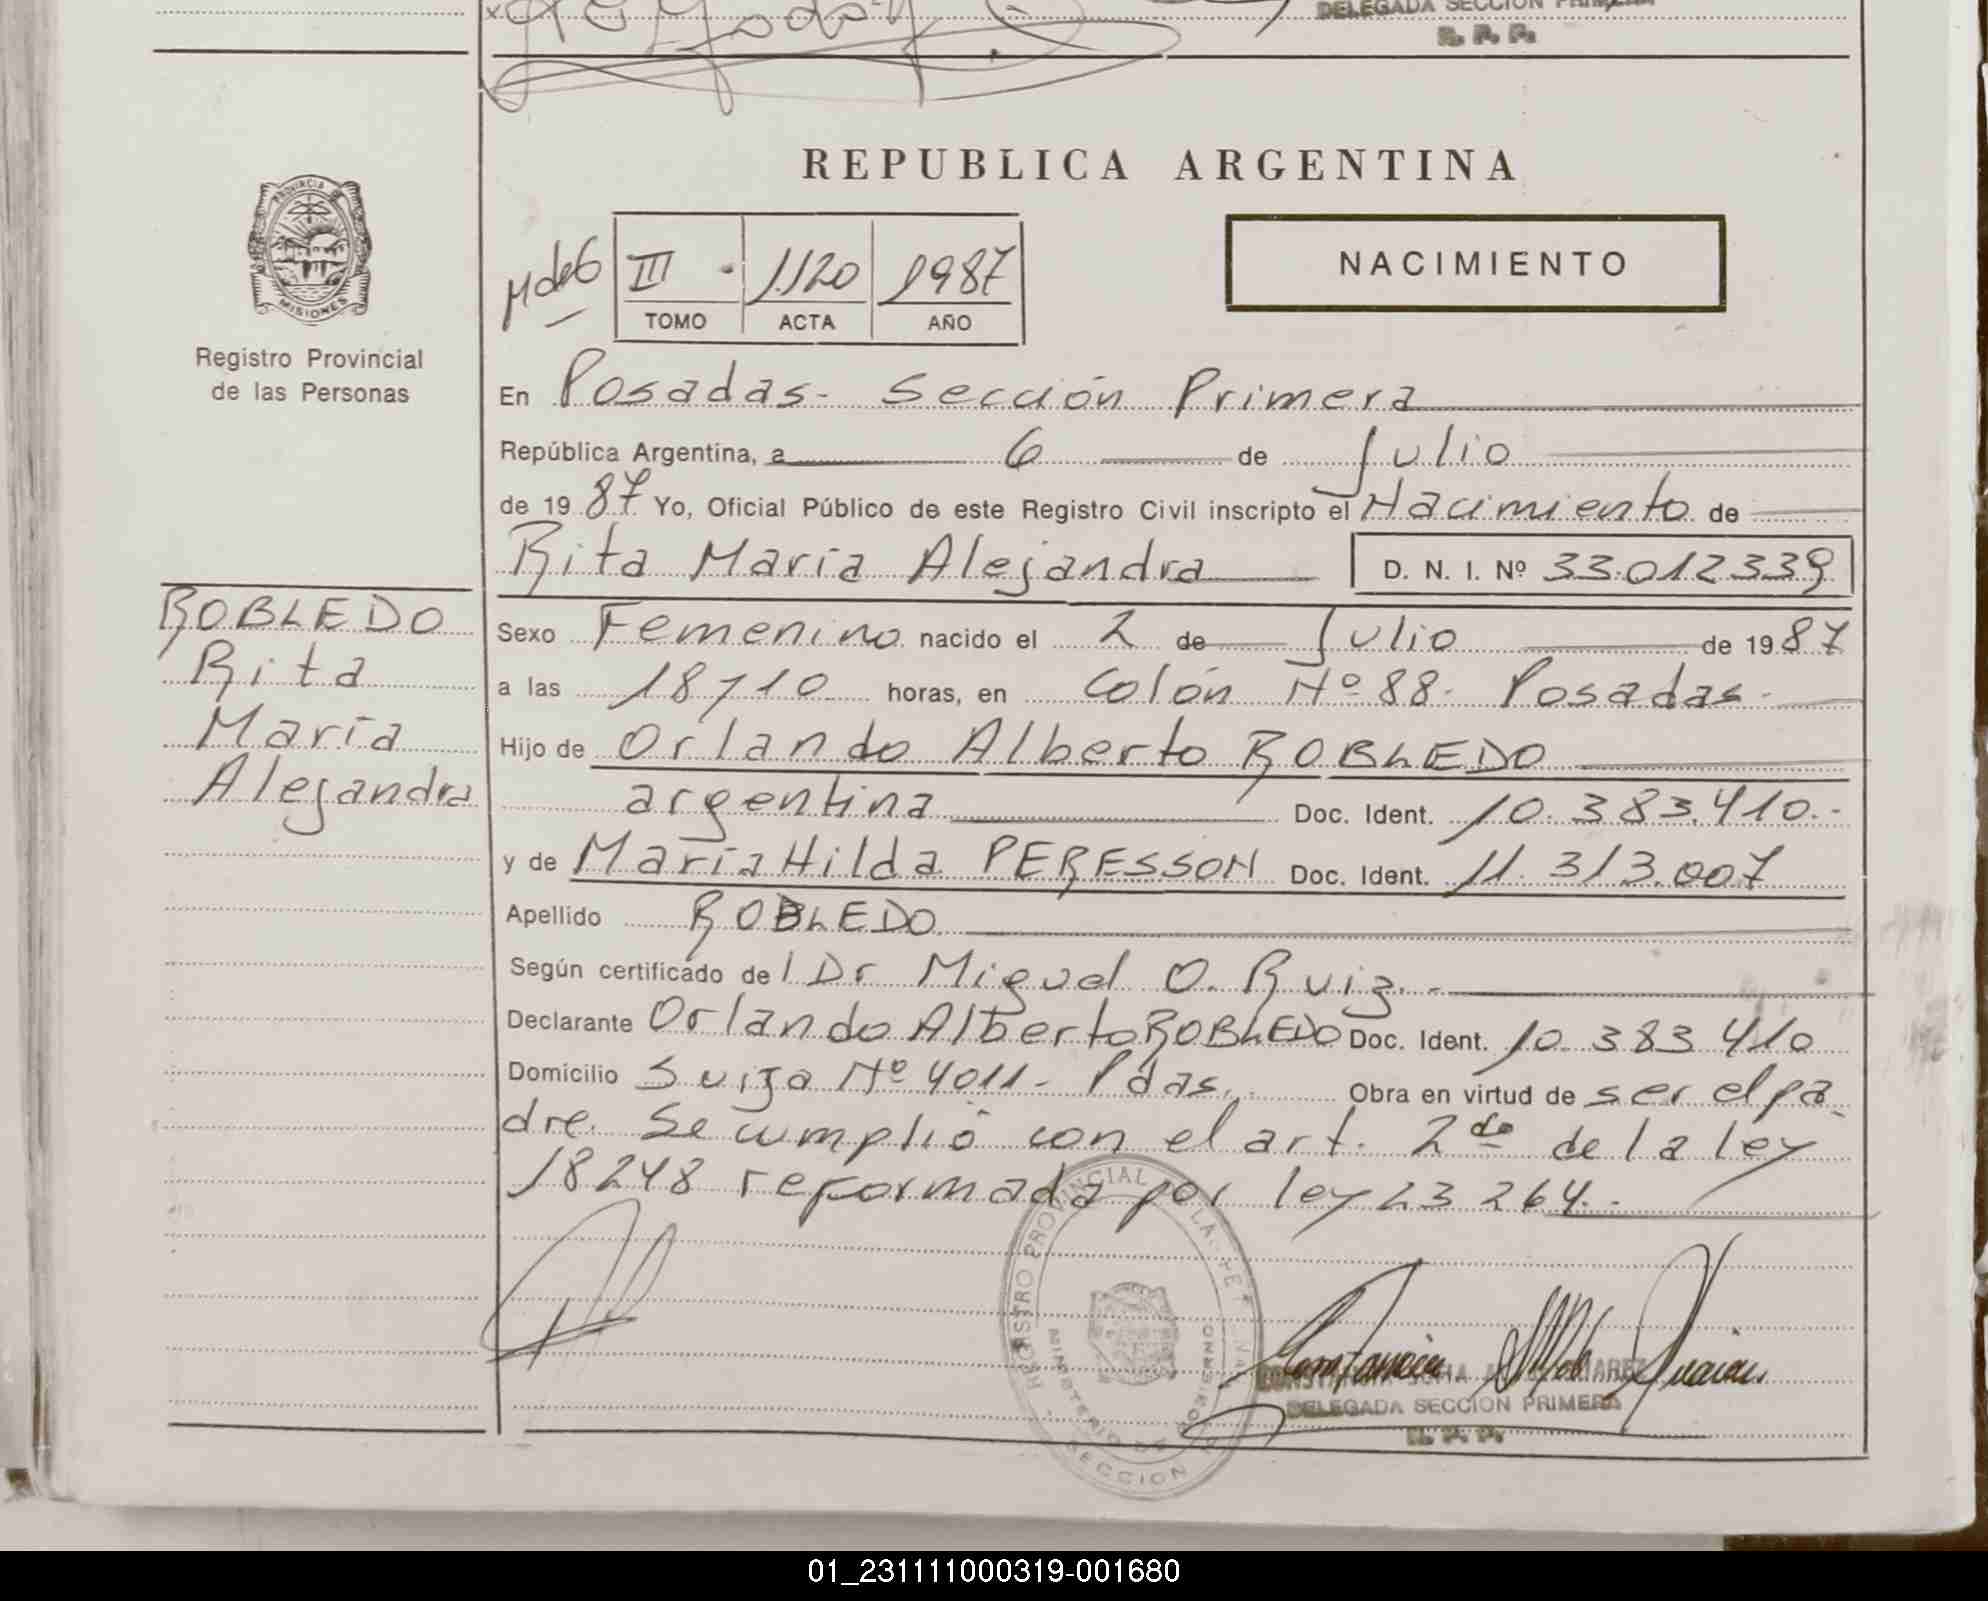 DELEGADA SECCION PRIMERA
R. P. P.
REPUBLICA ARGENTINA
PROVINCIA DE
MISIONES
Registro Provincial
de las Personas
M de G
III - 1120 1987
TOMO ACTA AÑO
NACIMIENTO
En Posadas - Sección Primera
República Argentina, a 6 de Julio
de 19 87 Yo, Oficial Público de este Registro Civil inscripto el Nacimiento de
Rita María Alejandra D. N. I. Nº 33.012339
ROBLEDO
Rita
María
Alejandra
Sexo Femenino nacido el 2 de Julio de 19 87
a las 18 y 10 horas, en Colón Nº 88 - Posadas -
Hijo de Orlando Alberto ROBLEDO
argentina Doc. Ident. 10.383.410.-
y de María Hilda PERESSON Doc. Ident. 11.313.007
Apellido ROBLEDO
Según certificado de l Dr Miguel O. Ruiz. -
Declarante Orlando Alberto ROBLEDO Doc. Ident. 10.383 410
Domicilio Suiza Nº 4011 - Pdas. Obra en virtud de ser el pa
dre. Se cumplió con el art. 2do de la ley
18248 reformada por ley 23 264.-
REGISTRO PROVINCIAL DE LAS PERSONAS
MINISTERIO DE GOBIERNO
SECCION
CONSTANCIA SOFIA
DELEGADA SECCION PRIMERA
R. P. P.
01_231111000319-001680